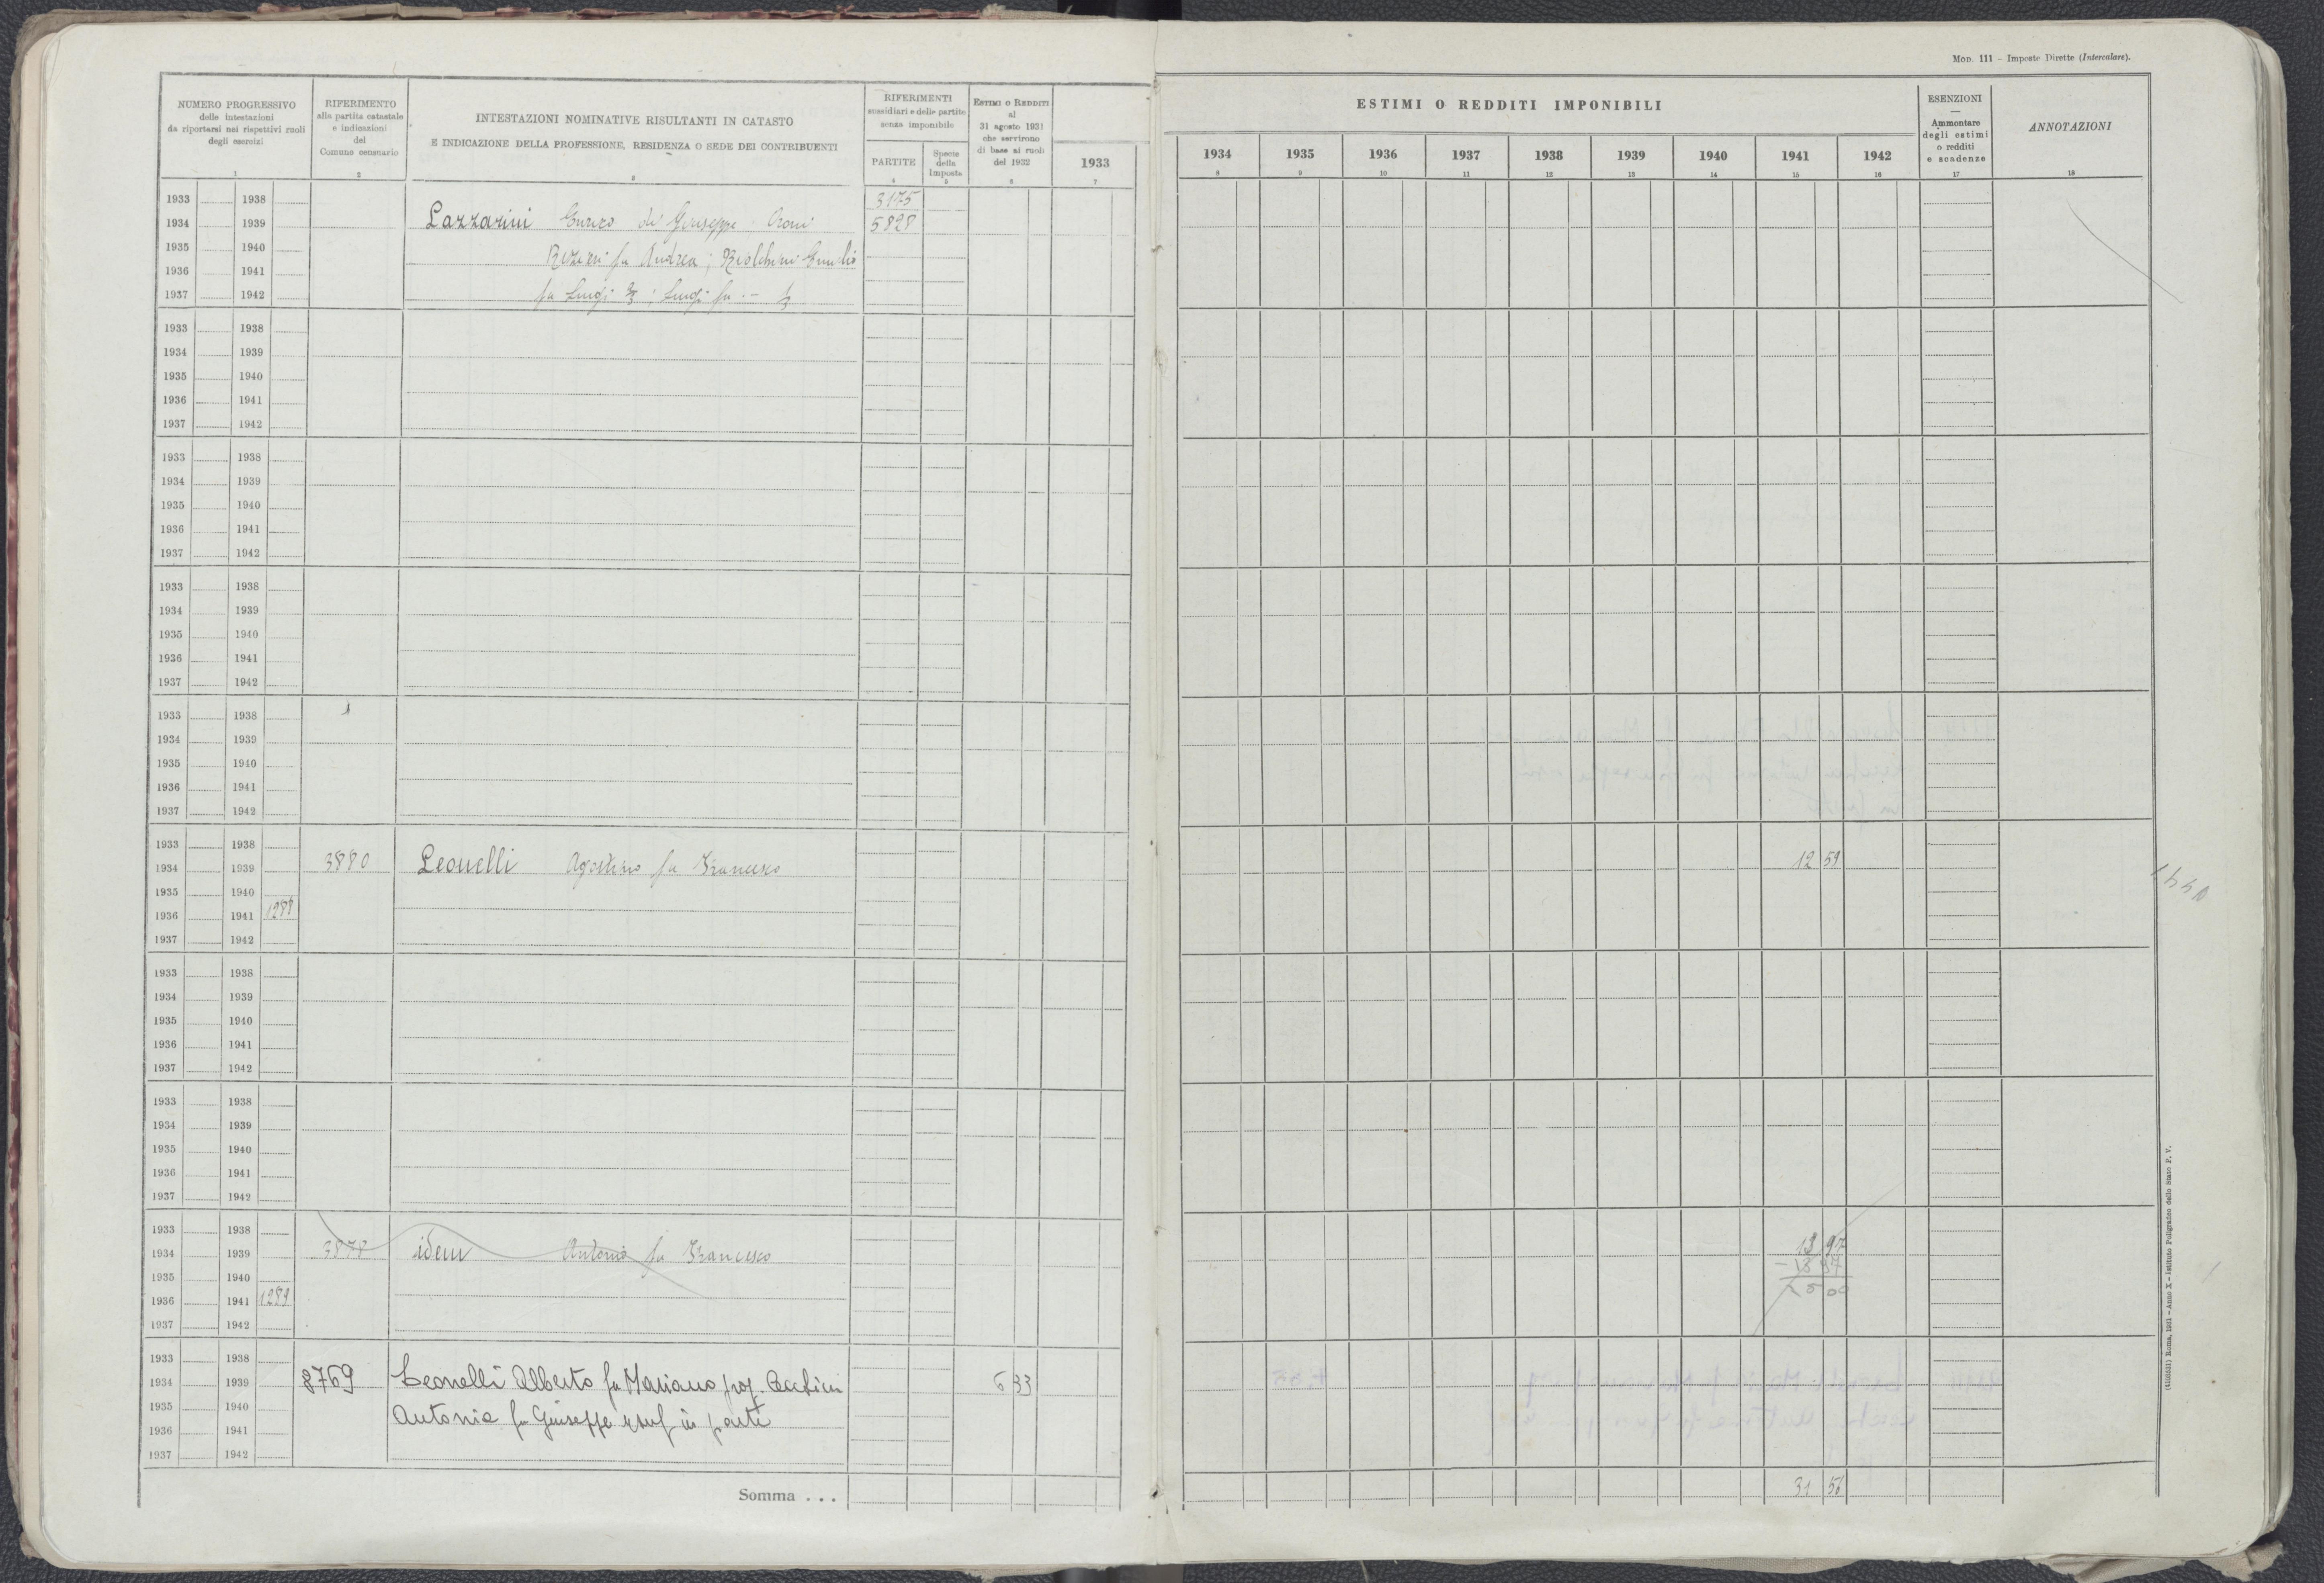 Mod. 111 – Imposte Dirette (Intercalare).
NUMERO PROGRESSIVO
delle intestazioni
da riportarsi nei rispettivi ruoli
degli esercizi
1
RIFERIMENTO
alla partita catastale
e indicazioni
del
Comune censuario
2
INTESTAZIONI NOMINATIVE RISULTANTI IN CATASTO
E INDICAZIONE DELLA PROFESSIONE, RESIDENZA O SEDE DEI CONTRIBUENTI
3
RIFERIMENTI
sussidiari e delle partite
senza imponibile
PARTITE
4
Specie
della
Imposta
5
Estimi o Redditi
al
31 agosto 1931
che servirono
di base ai ruoli
del 1932
6
1933
7
ESTIMI O REDDITI IMPONIBILI
1934 1935 1936 1937 1938 1939 1940 1941 1942
8 9 10 11 12 13 14 15 16
ESENZIONI
—
Ammontare
degli estimi
o redditi
e scadenze
17
ANNOTAZIONI
18
1933 1938 3175
1934 1939 Lazzarini Enrico di Giuseppe 5828
1935 1940 fu Andrea; Emilio
1936 1941
1937 1942 fu Luigi ; Luigi fu
1933 1938
1934 1939
1935 1940
1936 1941
1937 1942
1933 1938
1934 1939
1935 1940
1936 1941
1937 1942
1933 1938
1934 1939
1935 1940
1936 1941
1937 1942
1933 1938
1934 1939
1935 1940
1936 1941
1937 1942
1933 1938
1934 1939 3880 Leonelli Agostino fu Francesco 12 59
1935 1940
1936 1941 1288
1937 1942
1933 1938
1934 1939
1935 1940
1936 1941
1937 1942
1933 1938
1934 1939
1935 1940
1936 1941
1937 1942
1933 1938
1934 1939 3878 idem Antonio fu Francesco 18 97
1935 1940 – 18 97
1936 1941 1289 00
1937 1942
1933 1938
1934 1939 8769 Leonelli Alberto fu Mariano prop. Cecchini 6 33
1935 1940 Antonia fu Giuseppe usuf in parte
1936 1941
1937 1942
Somma . . . 31 56
(4105551) Roma, 1931 – Anno X – Istituto Poligrafico dello Stato P. V.